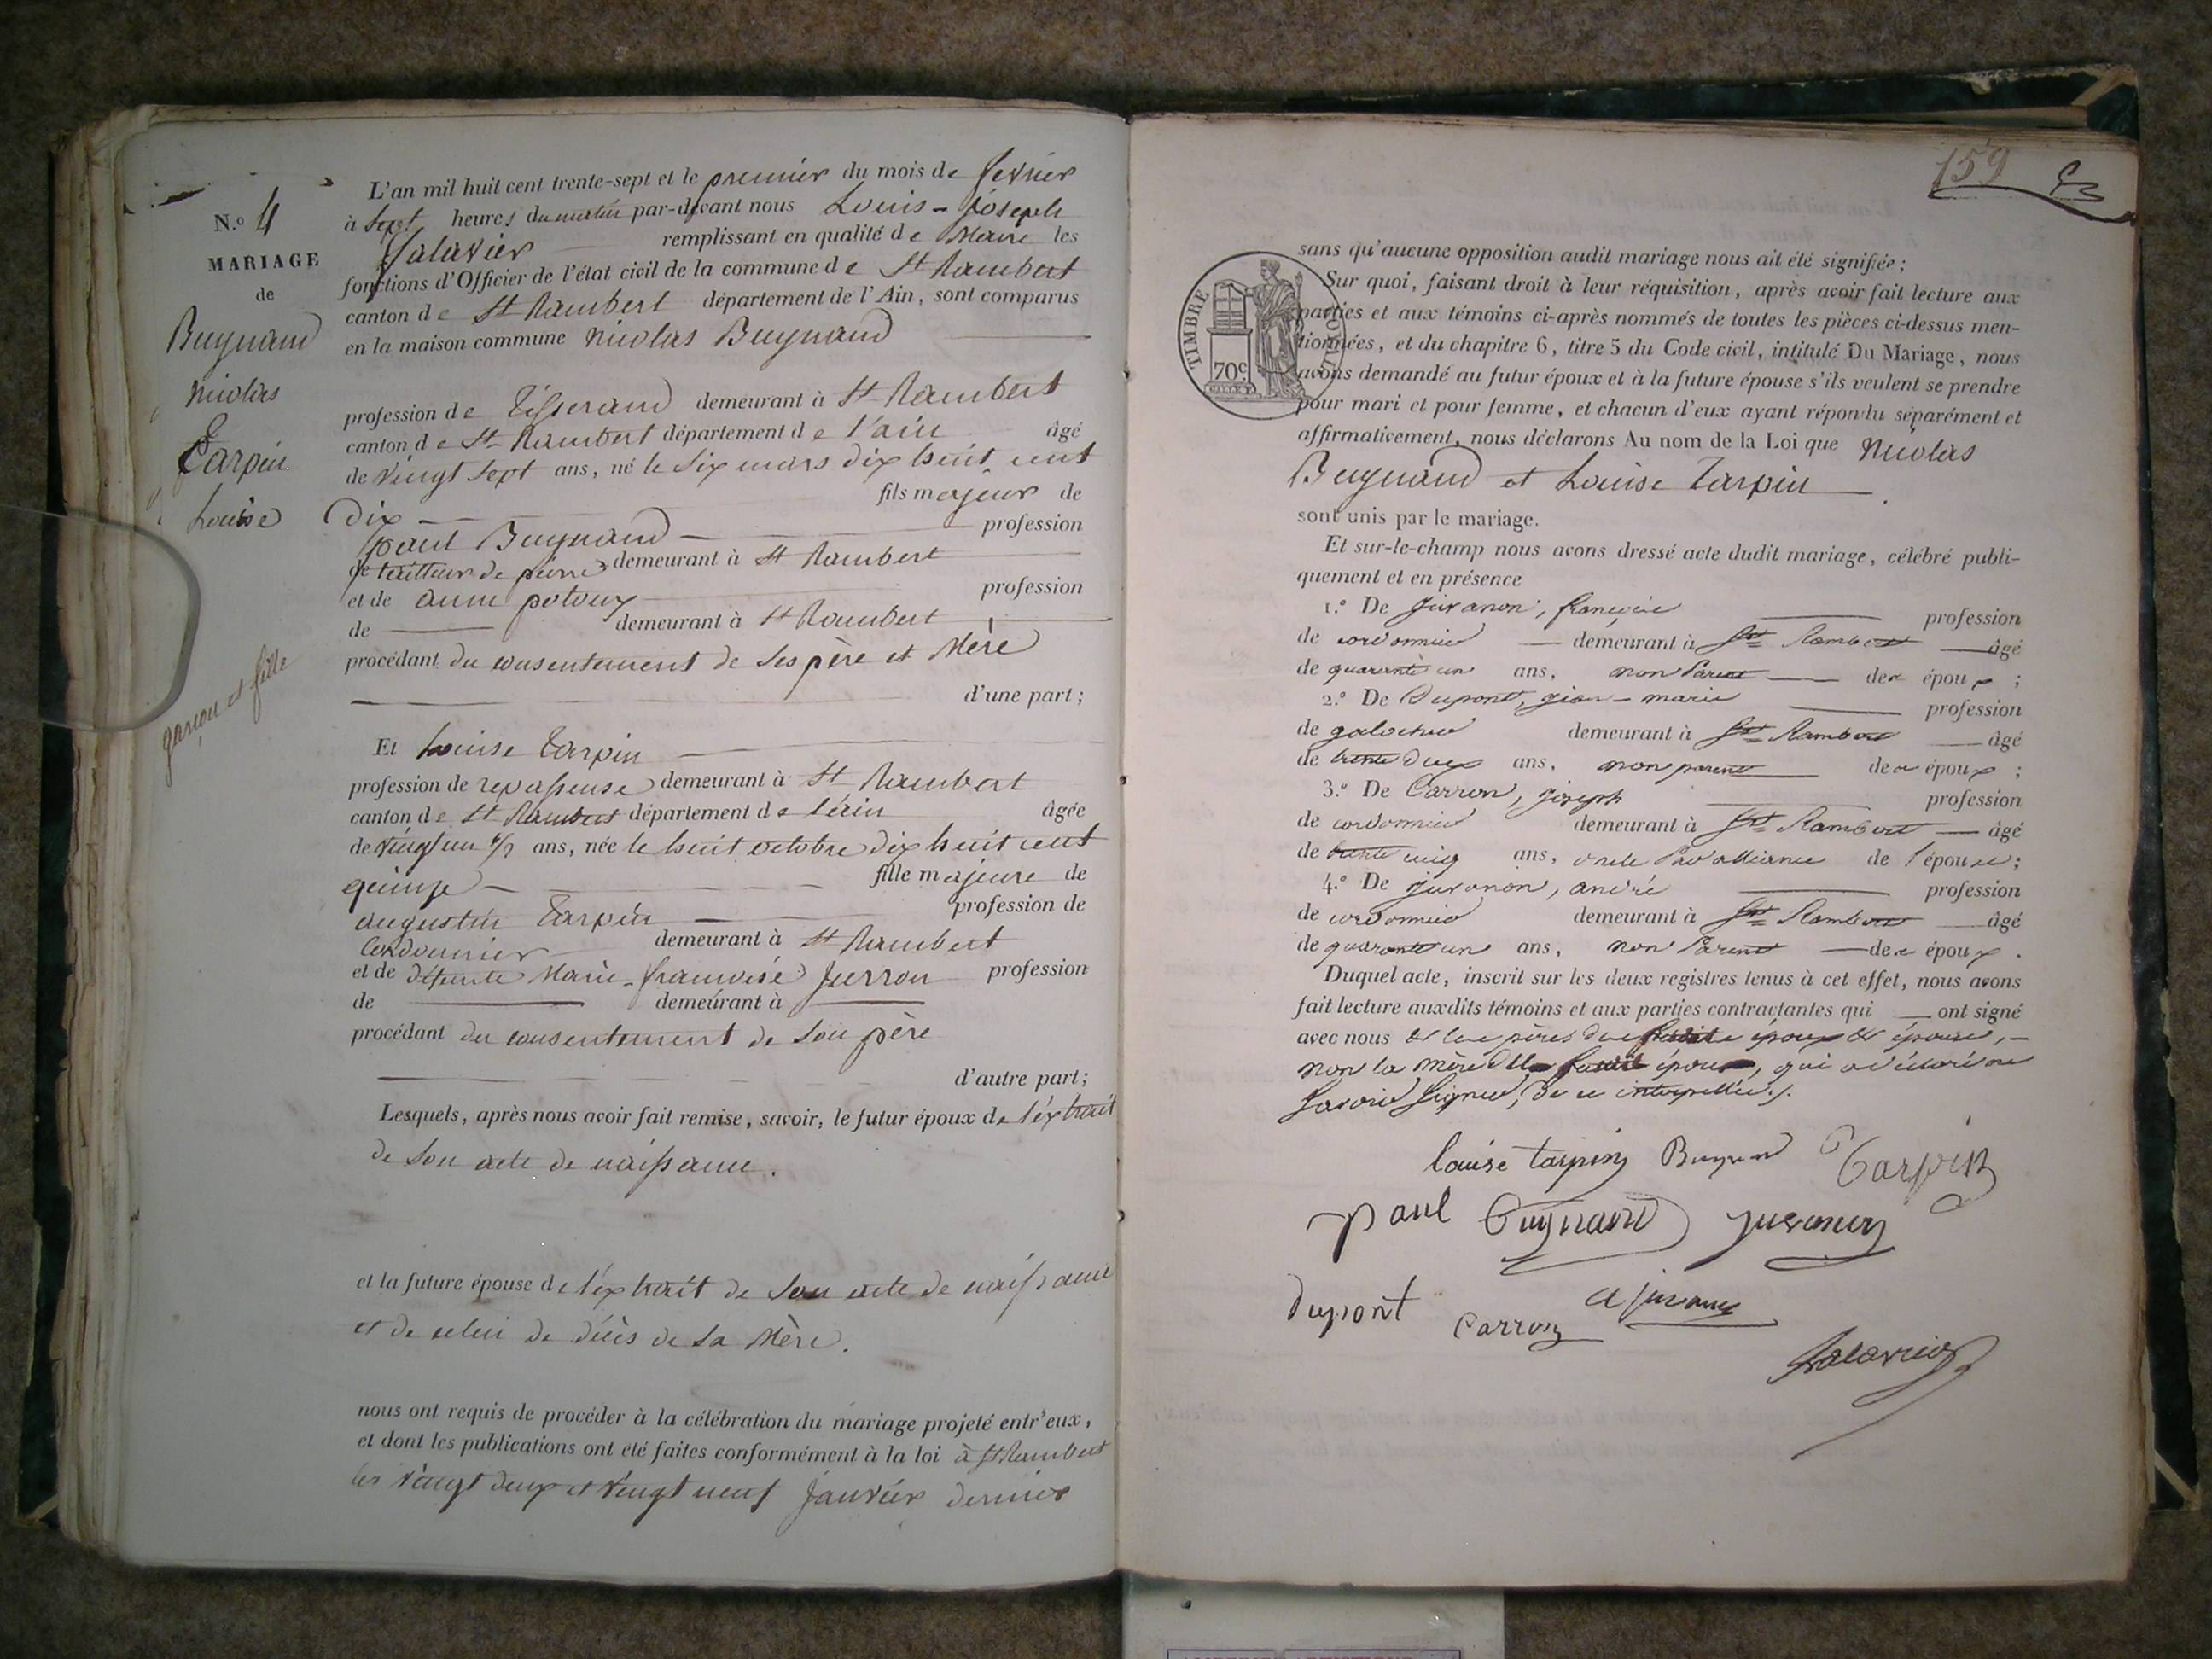 N.o 4
MARIAGE
de
Buynand
Nicolas
&
Tarpin
Louise
garçon et fille
L'an mil huit cent trente-sept et le premier du mois de fevrier
à Sept heures du matin par-devant nous Louis-Joseph
Salavier remplissant en qualité de Maire les
fonctions d'Officier de l'état civil de la commune de St Rambert
canton de St Rambert département de l'Ain, sont comparus
en la maison commune Nicolas Buynand
profession de Tisserand demeurant à St Rambert
canton de St Rambert département de l'ain âgé
de Vingt Sept ans, né le Six mars dix huit cent
Dix fils majeur de
paul Buynand profession
de tailleur de pierre demeurant à St Rambert
et de anne profession
de demeurant à St Rambert
procédant du consentement de Ses père et Mère
d'une part;
Et Louise Tarpin
profession de repasseuse demeurant à St Rambert
canton de St Rambert département de l'ain âgée
de Vingt un 1/2 ans, née le huit octobre dix huit cent
quinze fille majeure de
augustin Tarpin profession de
Cordonnier demeurant à St Rambert
et de défunte Marie-francoise profession
de demeurant à
procédant du consentement de Son père
d'autre part;
Lesquels, après nous avoir fait remise, savoir, le futur époux de l'éxtrait
de Son acte de naissance.
et la future épouse de l'éxtrait de Son acte de naissance
et de celui de décès de Sa Mère.
nous ont requis de procéder à la célébration du mariage projeté entr'eux,
et dont les publications ont été faites conformément à la loi à St Rambert
les Vingt deux et Vingt neuf Janvier dernier
159
TIMBRE ROYAL
70c
sans qu'aucune opposition audit mariage nous ait été signifiée;
Sur quoi, faisant droit à leur réquisition, après avoir fait lecture aux
parties et aux témoins ci-après nommés de toutes les pièces ci-dessus men-
tionnées, et du chapitre 6, titre 5 du Code civil, intitulé Du Mariage, nous
avons demandé au futur époux et à la future épouse s'ils veulent se prendre
pour mari et pour femme, et chacun d'eux ayant répondu séparément et
affirmativement, nous déclarons Au nom de la Loi que Nicolas
Buynand et Louise Tarpin
sont unis par le mariage.
Et sur-le-champ nous avons dressé acte dudit mariage, célébré publi-
quement et en présence
1.o De Juvanon, françois profession
de cordonnier demeurant à St Rambert âgé
de quarante un ans, non Parent des époux;
2.o De Dupont, jean-marie profession
de galochier demeurant à St Rambert âgé
de trente deux ans, non parent des époux;
3.o De Carron, joseph profession
de cordonnier demeurant à St Rambert âgé
de trente cinq ans, oncle Par alliance de l'épouse;
4.o De juvanon, andré profession
de cordonnier demeurant à St Rambert âgé
de quarante un ans, non Parent des époux.
Duquel acte, inscrit sur les deux registres tenus à cet effet, nous avons
fait lecture auxdits témoins et aux parties contractantes qui ont signé
avec nous et les pères des époux et épouse,
non la mère époux, qui a déclaré ne
Savoir Signer, de ce interpellée.
louise tarpin Buynand Tarpin
paul Buynand Juvanon
Dupont Carron a juvanon
Salavier